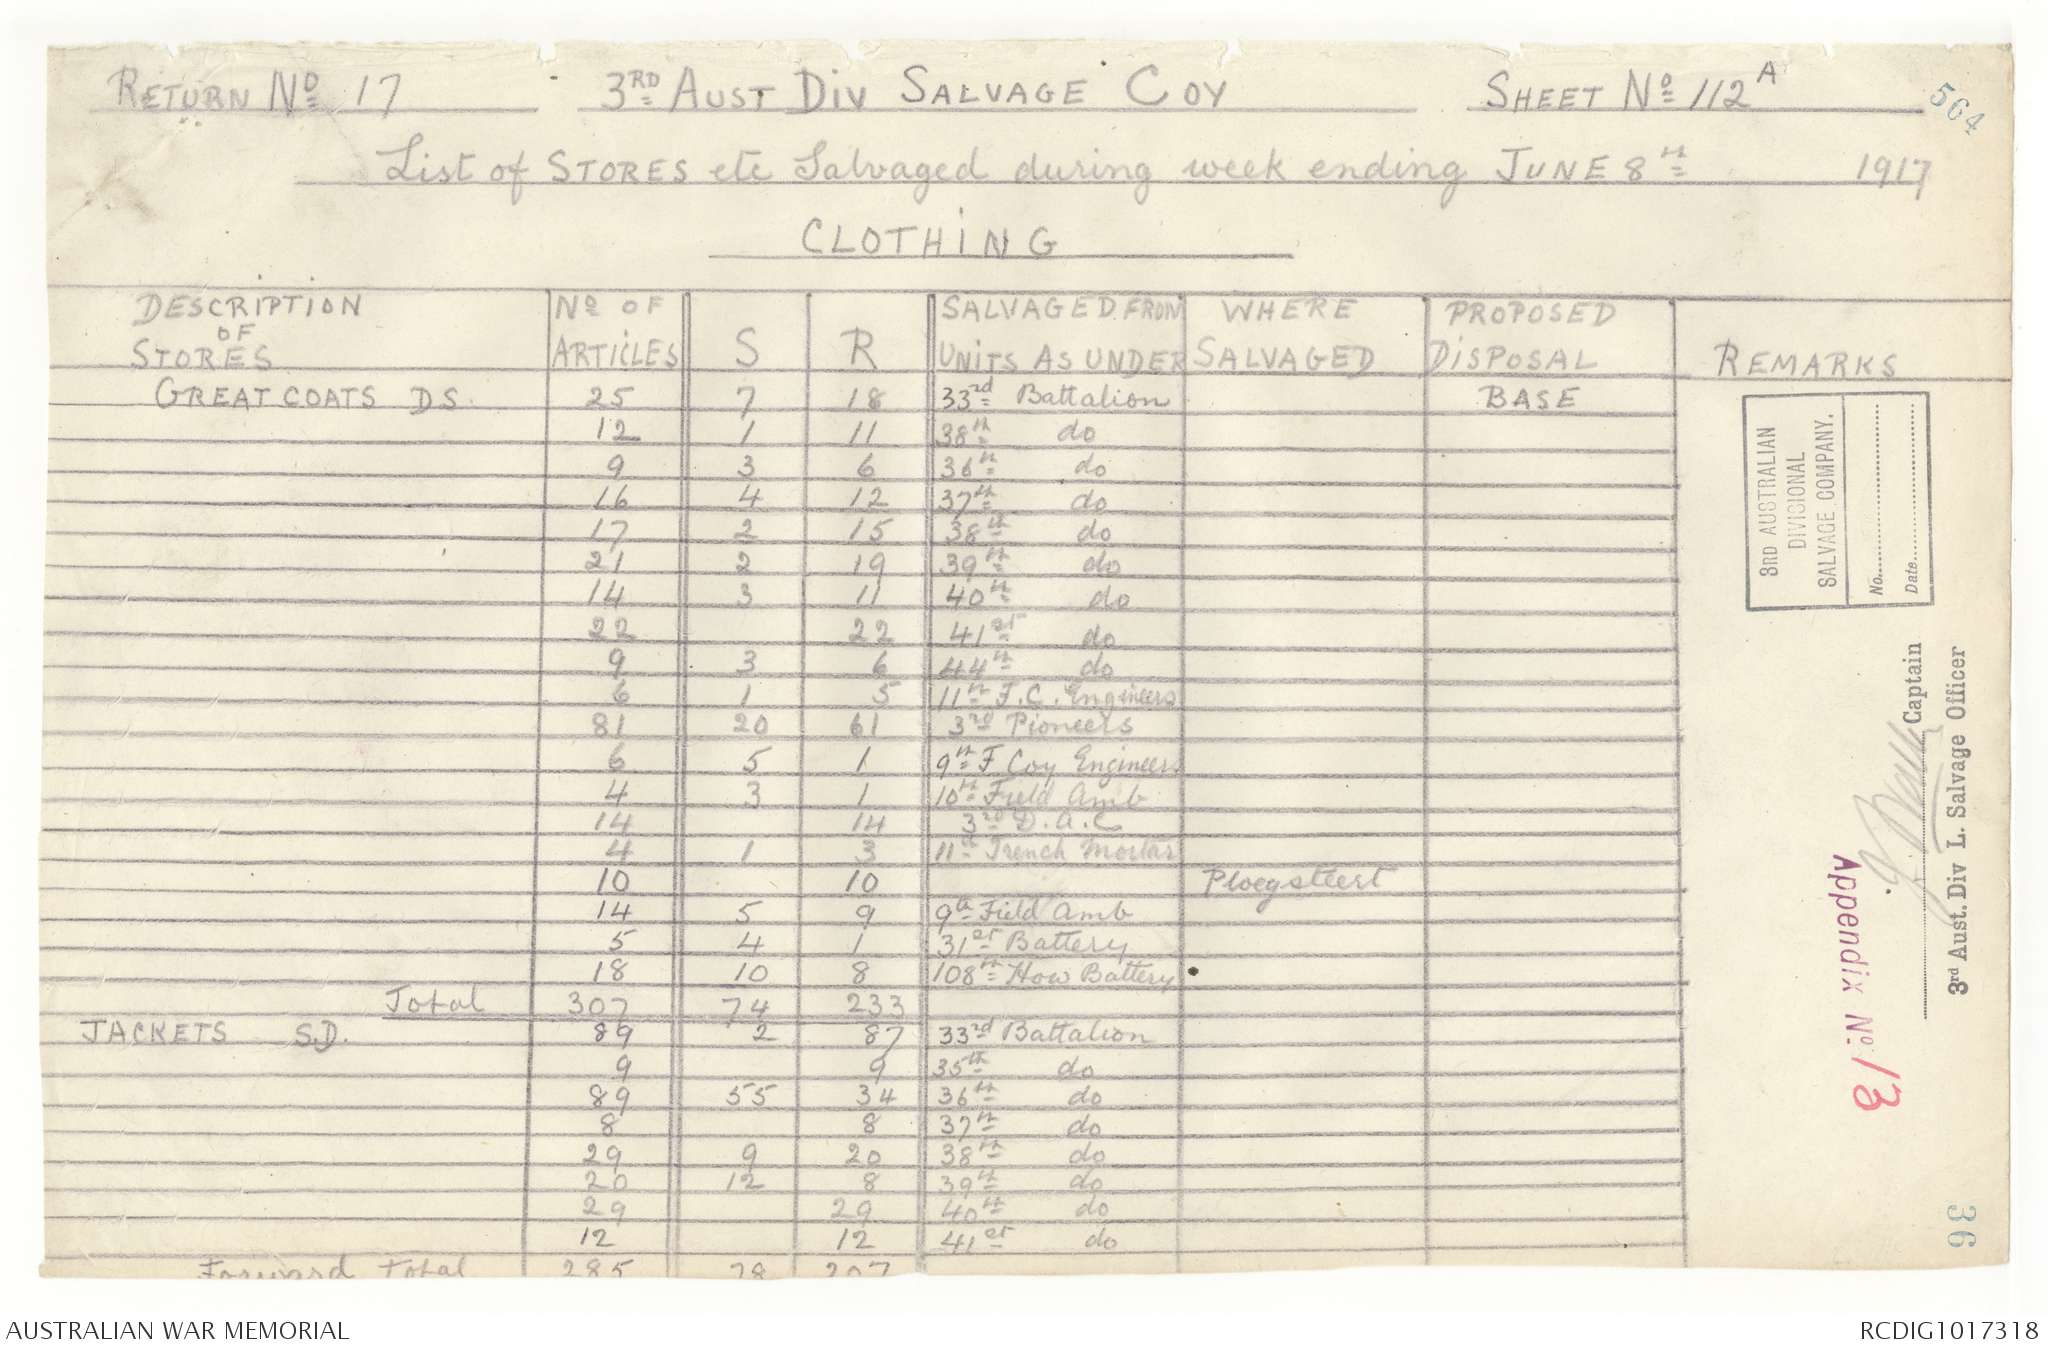 RETURN No 17 3RD AUST DIV SALVAGE COY SHEET No 112A 564
List of STORES etc Salvaged during week ending JUNE 8th 1917
CLOTHING
DESCRIPTION OF STORES No OF ARTICLES S R SALVAGED FROM UNITS AS UNDER WHERE SALVAGED PROPOSED DISPOSAL REMARKS
GREAT COATS DS. 25 7 18 33rd Battalion BASE
12 1 11 38th do
9 3 6 36th do
16 4 12 37th do
17 2 15 38th do
21 2 19 39th do
14 3 11 40th do
22 22 41st do
9 3 6 44th do
6 1 5 11th F.C. Engineers
81 20 61 3rd Pioneers
6 5 1 9th F Coy Engineers
4 3 1 10th Field Amb
14 14 3rd D.A.C
4 1 3 11th Trench Mortar
10 10 Ploegsteert
14 5 9 9th Field Amb
5 4 1 31st Battery
18 10 8 108th How Battery
Total 307 74 233
JACKETS S.D. 89 2 87 33rd Battalion
9 9 35th do
89 55 34 36th do
8 8 37th do
29 9 20 38th do
20 12 8 39th do
29 29 40th do
12 12 41st do
Forward Total 285 78 207
3RD AUSTRALIAN
DIVISIONAL
SALVAGE COMPANY.
No.
Date
Captain
3rd Aust. Div L. Salvage Officer
Appendix No. 13
36
AUSTRALIAN WAR MEMORIAL RCDIG1017318